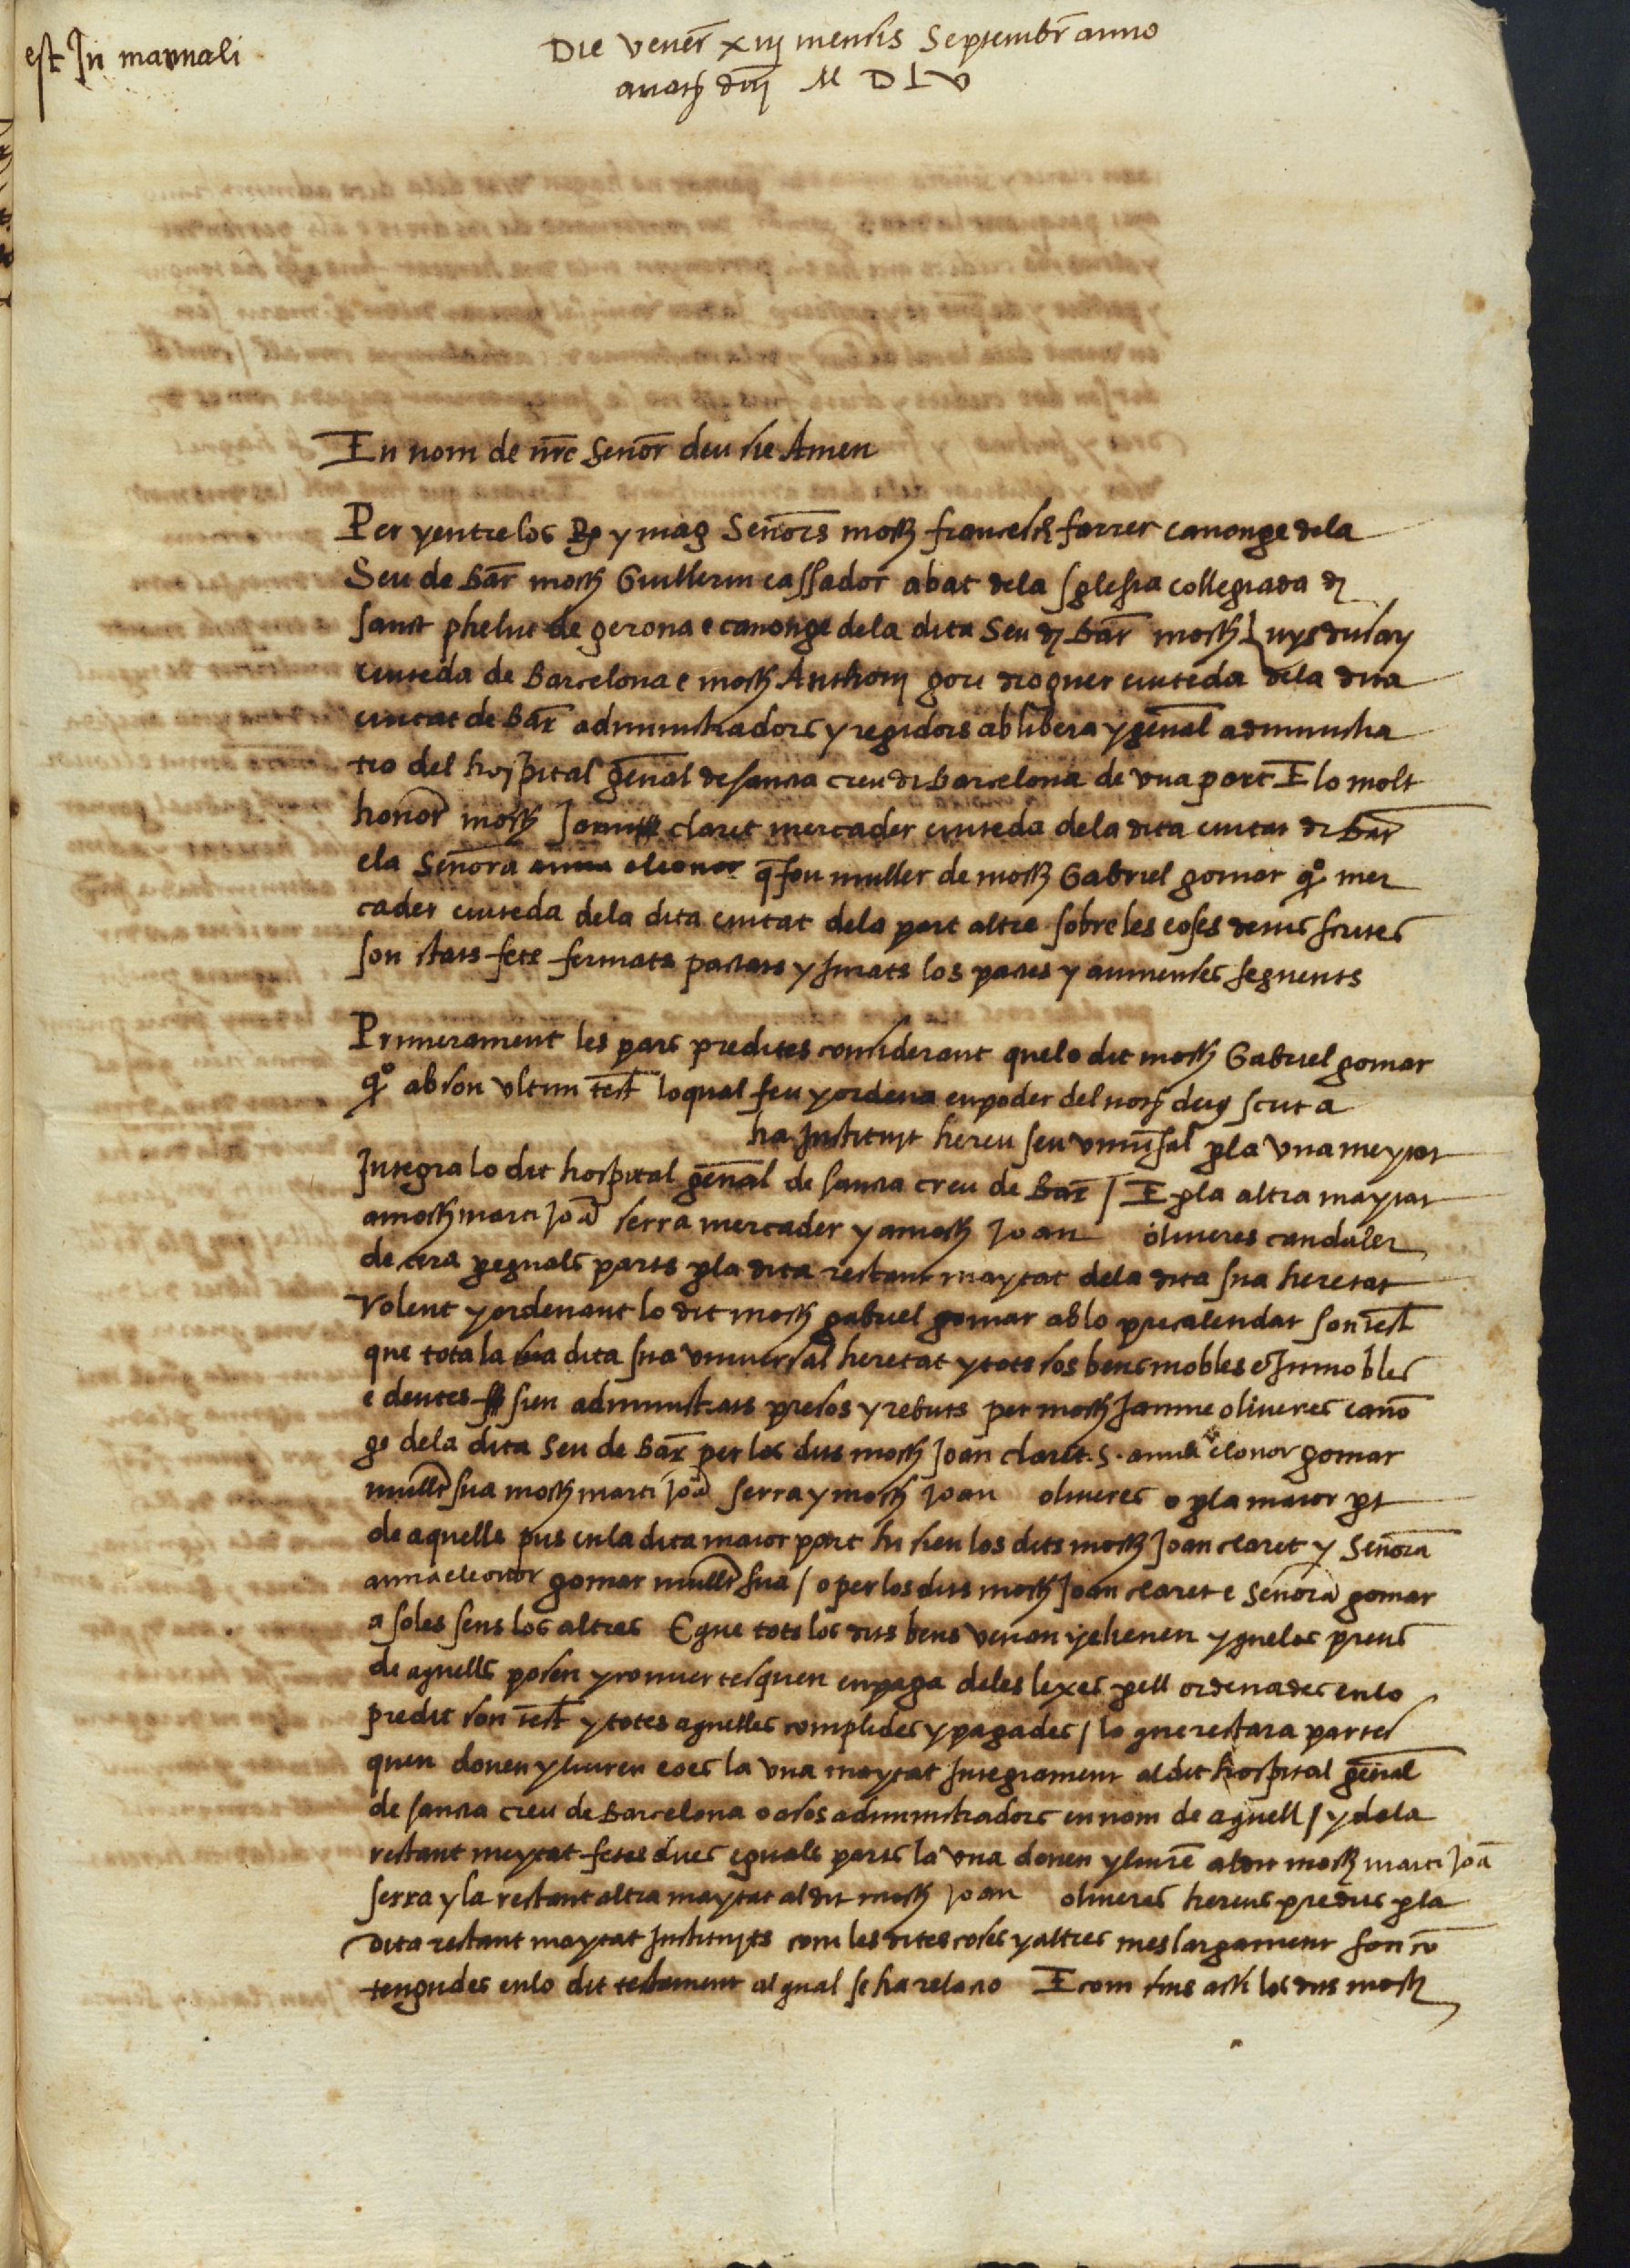 est In manuali
Die vener xiij mensis Septembr anno
a natj dnj M D L V
In nom de nre Senor deu sie Amen
Per y entre los Rts y mag Senors moss francesch ferrer canonge dela
Seu de Bar moss Guillerm cassador abat dela Sglesia collegiada d
sanct pheliu de gerona e canonge dela dita Seu d Bar moss Luys dusay
ciuteda de Barcelona e moss Anthonj gori droguer ciuteda dela dita
ciutat de Bar administradors y regidors ab libera y genal administra
tio del hospital genal de sancta creu de Barcelona de vna part E lo molt
honor moss Joan claret mercader ciuteda dela dita ciutat de Bar
e la Senora anna elionor q fou muller de moss Gabriel gomar qo mer
cader ciuteda dela dita ciutat dela part altre sobre les coses deius scrites
son stats fets fermats pactats y jurats los pactes y auinenses seguents
Primerament les pars predites considerant que lo dit moss Gabriel gomar
qo ab son vltim test lo qual feu y ordena en poder del not deuj scrit a
ha Instituit hereu seu vniuersal p la vna meytat
Integra lo dit hospital genal de sancta creu de Bar / E p la altra maytat
a moss marti Joa serra mercader y a moss Joan oliueres candeler
de cera p eguals parts p la dita restant maytat dela dita sua heretat
Volent y ordenant lo dit moss gabriel gomar ab lo precalendat son test
que tota la sua dita sua vniuersal heretat y tots sos bens mobles e Inmobles
e deutes sien administrats presos y rebuts per moss Jaume oliueres cano
ge dela dita Seu de Bar per los dits moss Joan claret. S. anna elonor gomar
muller sua moss marti Joa serra y moss Joan oliueres o p la maior pt
de aquells pus en la dita maior part hi sien los dits moss Joan claret y Senora
anna eleonor gomar muller sua / o per los dits moss Joan claret e Senora gomar
a soles sens los altres E que tots los dits bens venan y alienen y que los preus
de aquells posen y conuertesquen en paga deles lexes p ell ordenades en lo
predit son test y totes aquelles complides y pagades / lo que restara partes
quen donen y liuren ço es la vna maytat Integrament al dit hospital genal
de sancta creu de Barcelona o a sos administradors en nom de aquell / y dela
restant meytat fetes dues eguals parts la vna donen y liure al dit moss marti Joa
serra y la restant altra maytat al dit moss Joan oliueres hereus predits p la
dita restant maytat Instituits com les dites coses y altres mes largament son co
tengudes en lo dit testament al qual se ha relacio E com fins assi los dits moss